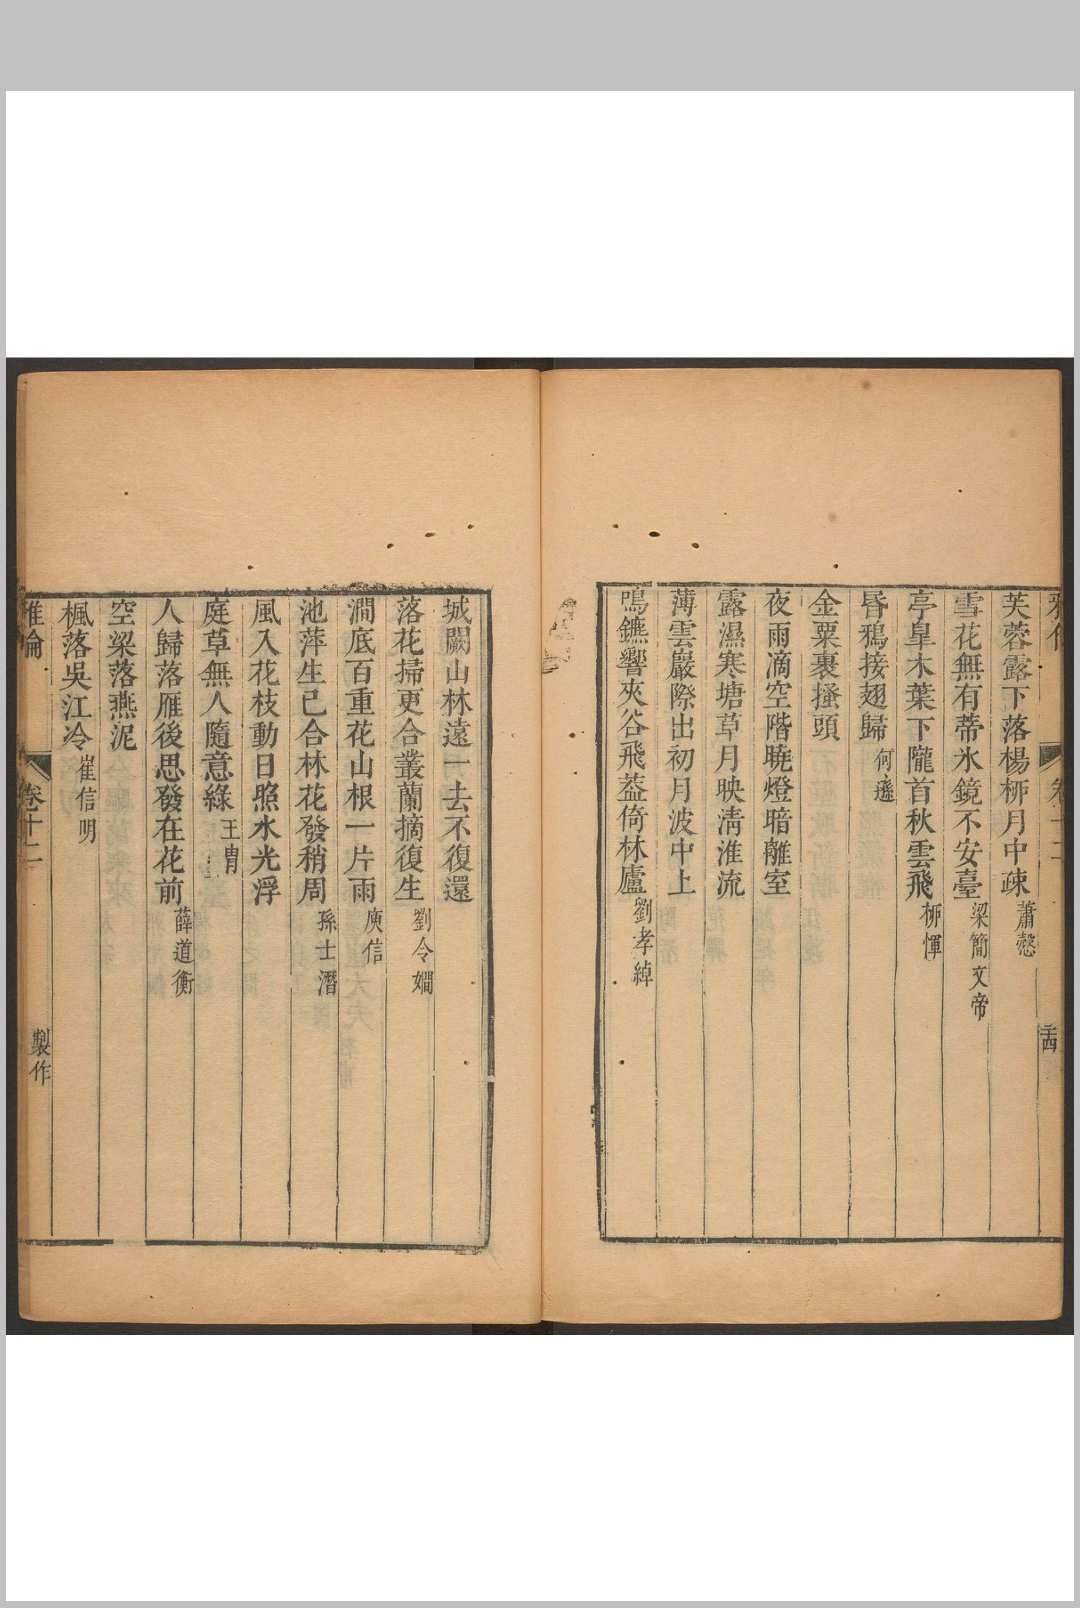 卷十二
芙蓉露下落楊柳月中疎 蕭愨
雪花無有蒂氷鏡不安臺 梁簡文帝
亭皐木葉下隴首秋雲飛 柳惲
昏鴉接翅歸 何遜
金粟裹搔頭
夜雨滴空階曉燈暗離室
露濕寒塘草月映淸淮流
薄雲巖際出初月波中上
鳴鑣響夾谷飛葢倚林廬 劉孝綽
城闕山林遠一去不復還
落花掃更合叢蘭摘復生 劉令嫻
澗底百重花山根一片雨 庾信
池萍生已合林花發稍周 孫士潛
風入花枝動日照水光浮
庭草無人隨意綠 王胄
人歸落雁後思發在花前 薛道衡
空梁落燕泥
楓落吳江冷 崔信明
雅倫 卷十二 製作